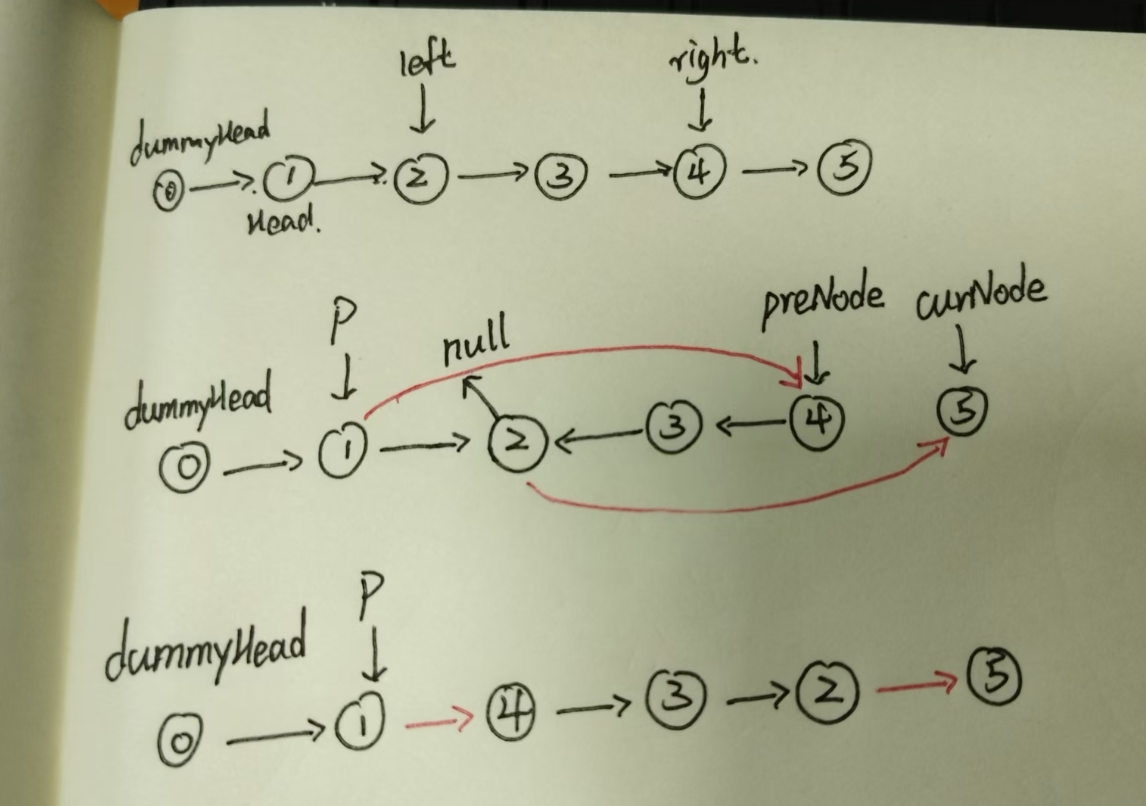 left right.
dummyHead
0 1 2 3 4 5
Head.
P null preNode currNode
dummyHead
0 1 2 3 4 5
P
dummyHead
0 1 4 3 2 5